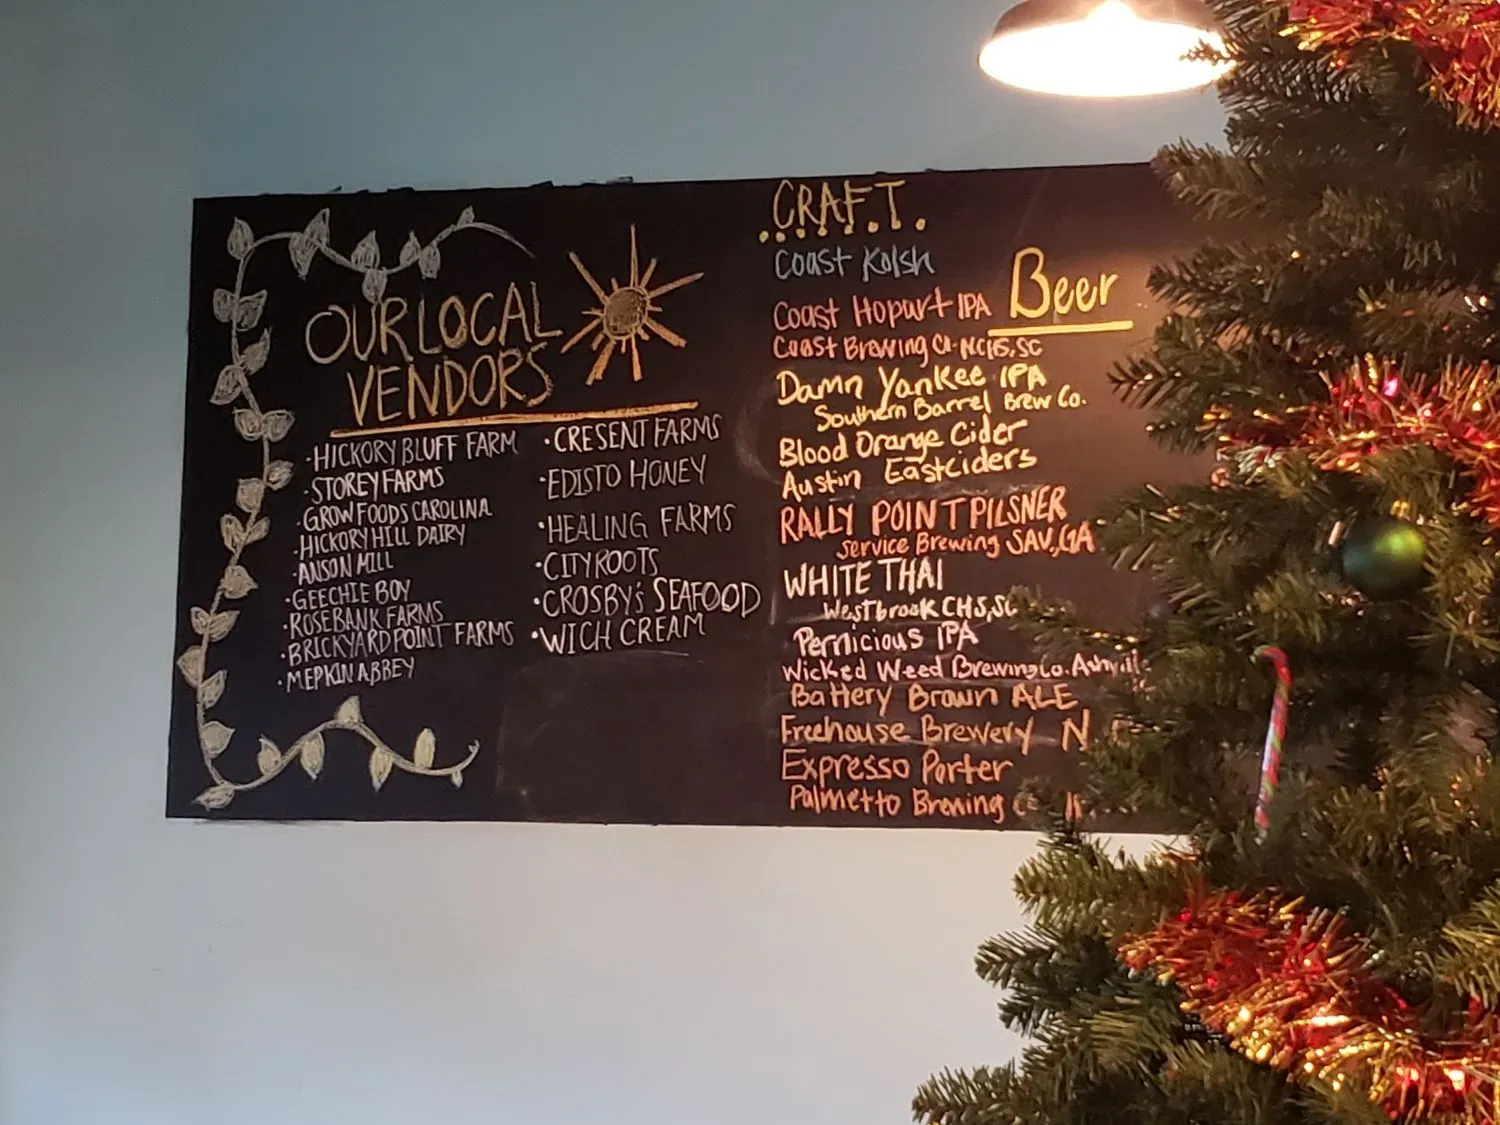 OUR LOCAL
VENDORS
·HICKORY BLUFF FARM
·STOREY FARMS
·GROW FOODS CAROLINA
·HICKORY HILL DAIRY
·ANSON MILL
·GEECHIE BOY
·ROSEBANK FARMS
·BRICKYARD POINT FARMS
·MEPKIN ABBEY
·CRESENT FARMS
·EDISTO HONEY
·HEALING FARMS
·CITY ROOTS
·CROSBY'S SEAFOOD
·WICH CREAM
CRAFT
Beer
Coast Kolsh
Coast Hopart IPA
Coast Brewing Co. NCHS, SC
Damn Yankee IPA
Southern Barrel Brew Co.
Blood Orange Cider
Austin Eastciders
RALLY POINT PILSNER
Service Brewing SAV, GA
WHITE THAI
Westbrook CHS, SC
Pernicious IPA
Wicked Weed Brewing Co.
Battery Brown ALE
Freehouse Brewery N
Expresso Porter
Palmetto Brewing